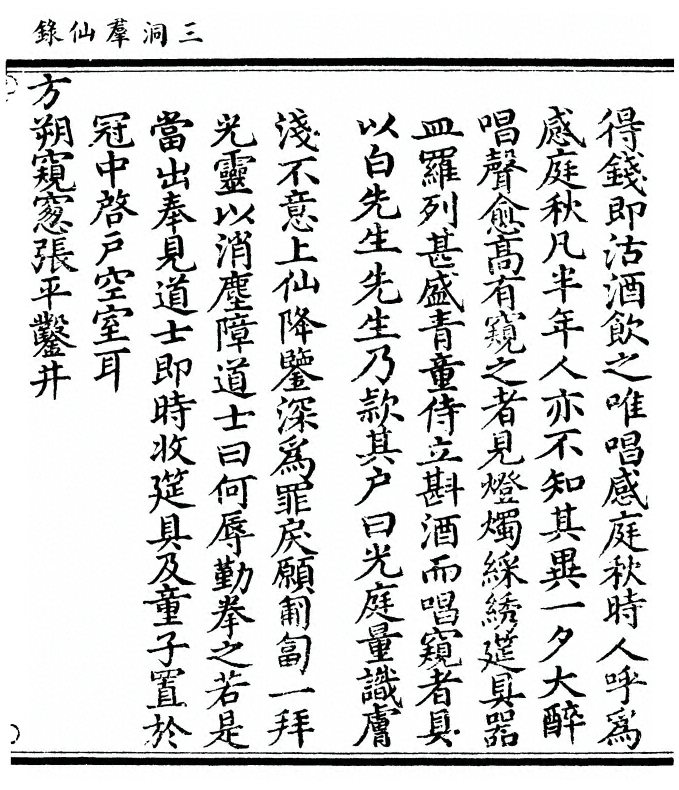 三洞羣仙錄
得錢即沽酒飲之唯唱感庭秋時人呼爲
感庭秋凡半年人亦不知其異一夕大醉
唱聲愈高有窺之者見燈燭綵綉筵具器
皿羅列甚盛青童侍立斟酒而唱窺者具
以白先生先生乃款其户曰光庭量識膚
淺不意上仙降鑒深爲罪戾願匍匐一拜
光靈以消塵障道士曰何辱勤拳之若是
當出奉見道士即時收筵具及童子置於
冠中啓戶空室耳
方朔窺窻張平鑿井